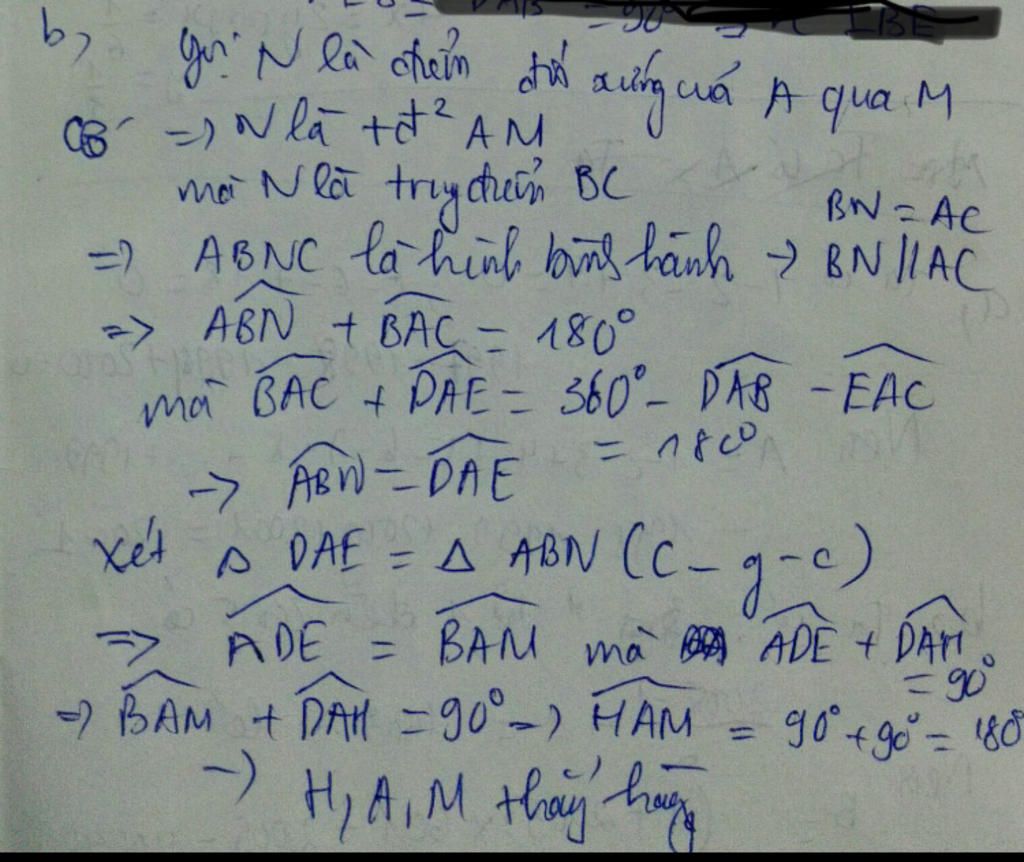 = 90° => IBE
b, gọi N là điểm đối xứng của A qua M
=> N là tđ² AM
mà N là trung điểm BC
BN = AC
=> ABNC là hình bình hành -> BN // AC
=> ABN + BAC = 180°
mà BAC + DAE = 360° - DAB - EAC
= 180°
-> ABN = DAE
Xét Δ DAE = Δ ABN (c - g - c)
=> ADE = BAM mà ADE + DAH
= 90°
=> BAM + DAH = 90° -> HAM = 90° + 90° = 180°
-> H, A, M thẳng hàng